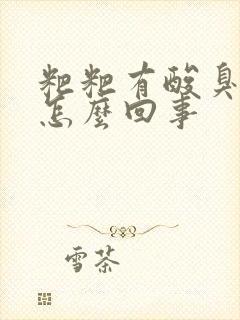 粑粑有酸臭
怎麼回事
雪茶